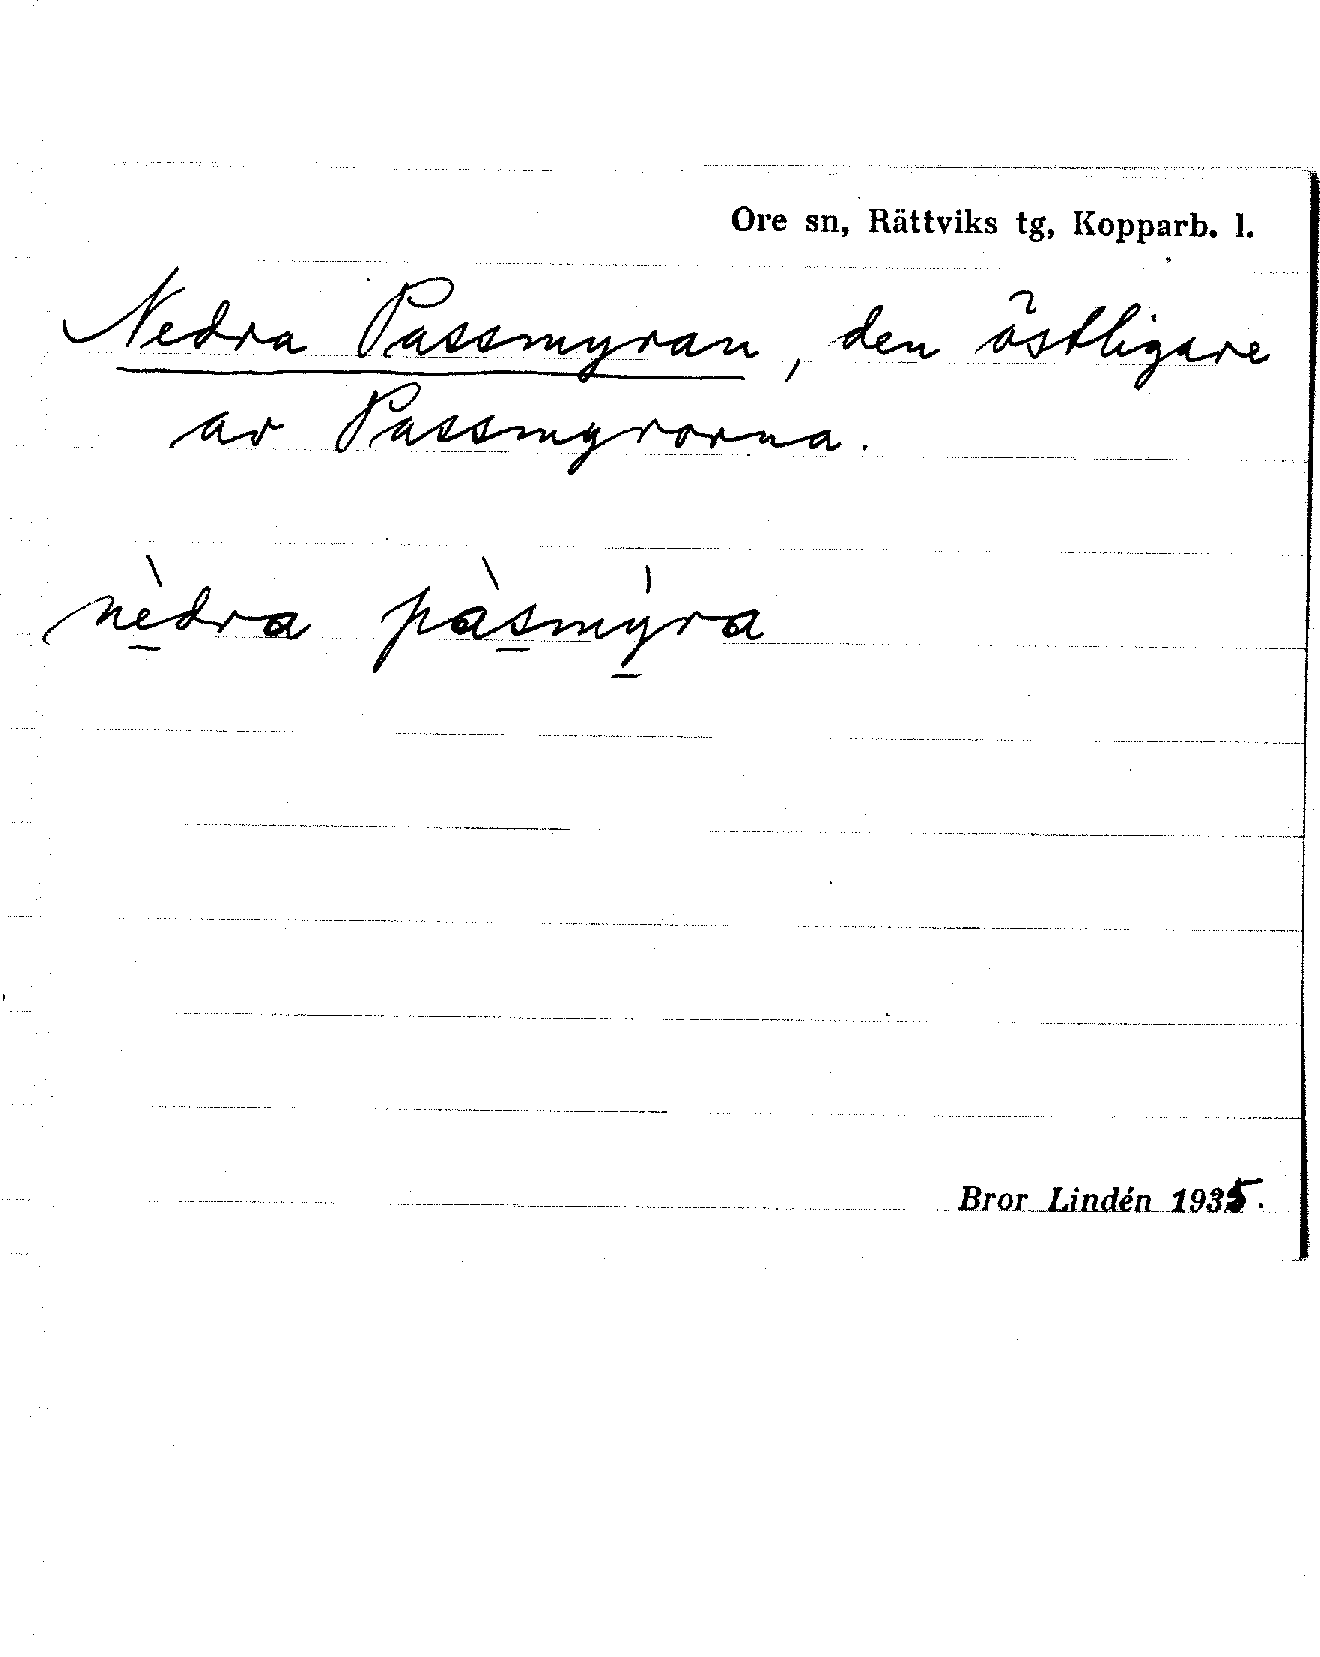 Ore sn, Rättviks tg, Kopparb. l.
Nedra Passmyran, den östligare
av Passmyrorna.
nèdra pàsmýra
Bror Lindén 1935.